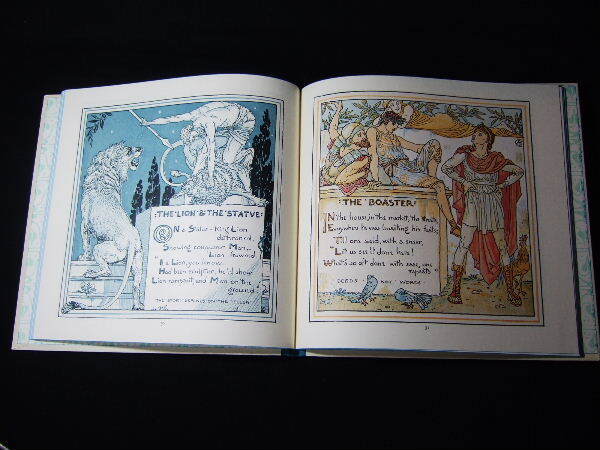 ·THE·LION·&·THE·STATVE·
ON a Statue – King Lion
dethroned,
Showing conqueror Man,–
Lion frowned.
"If a Lion, you know,
Had been sculptor, he'd show
Lion rampant, and Man on the
ground."
THE STORY DEPENDS ON THE TELLER
·THE BOASTER·
IN the house, in the market, the streets
Everywhere he was boasting his feats;
Till one said, with a sneer,
"Let us see it done here!
What's so oft done with ease, one
repeats."
DEEDS · NOT · WORDS